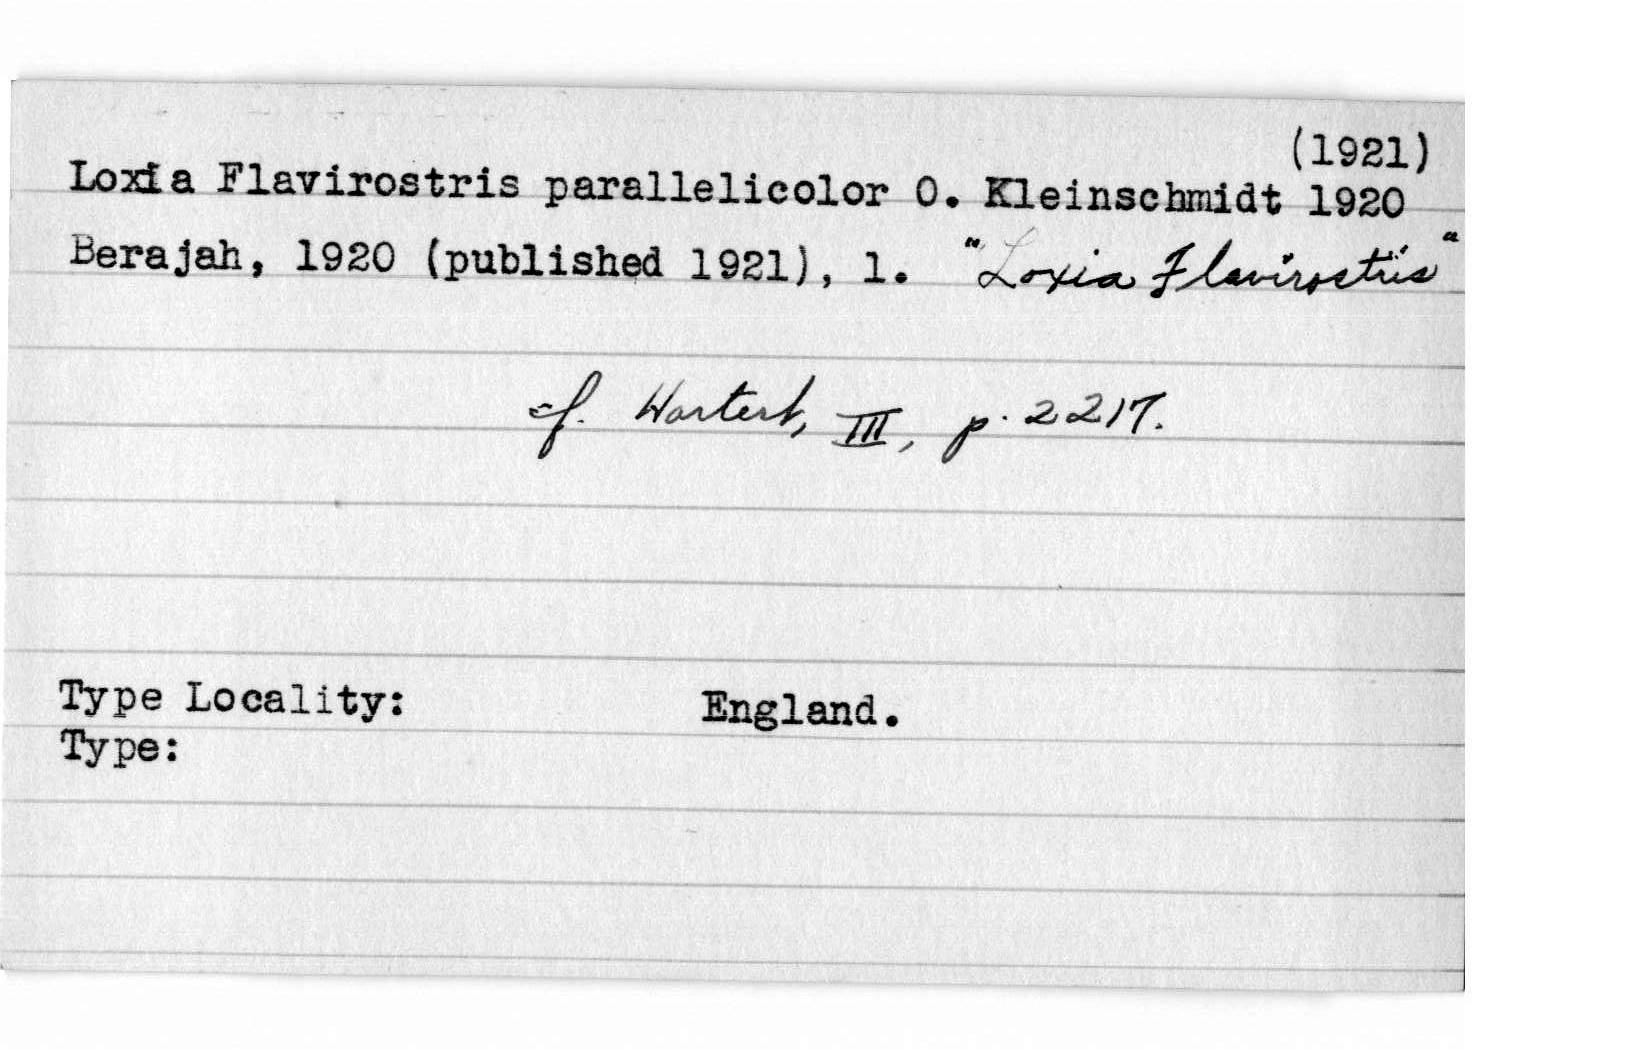 (1921)
Loxia Flavirostris parallelicolor O. Kleinschmidt 1920
Berajah, 1920 (published 1921), 1. "Loxia Flavirostris"
cf. Hartert, III, p. 2217.
Type Locality: England.
Type: